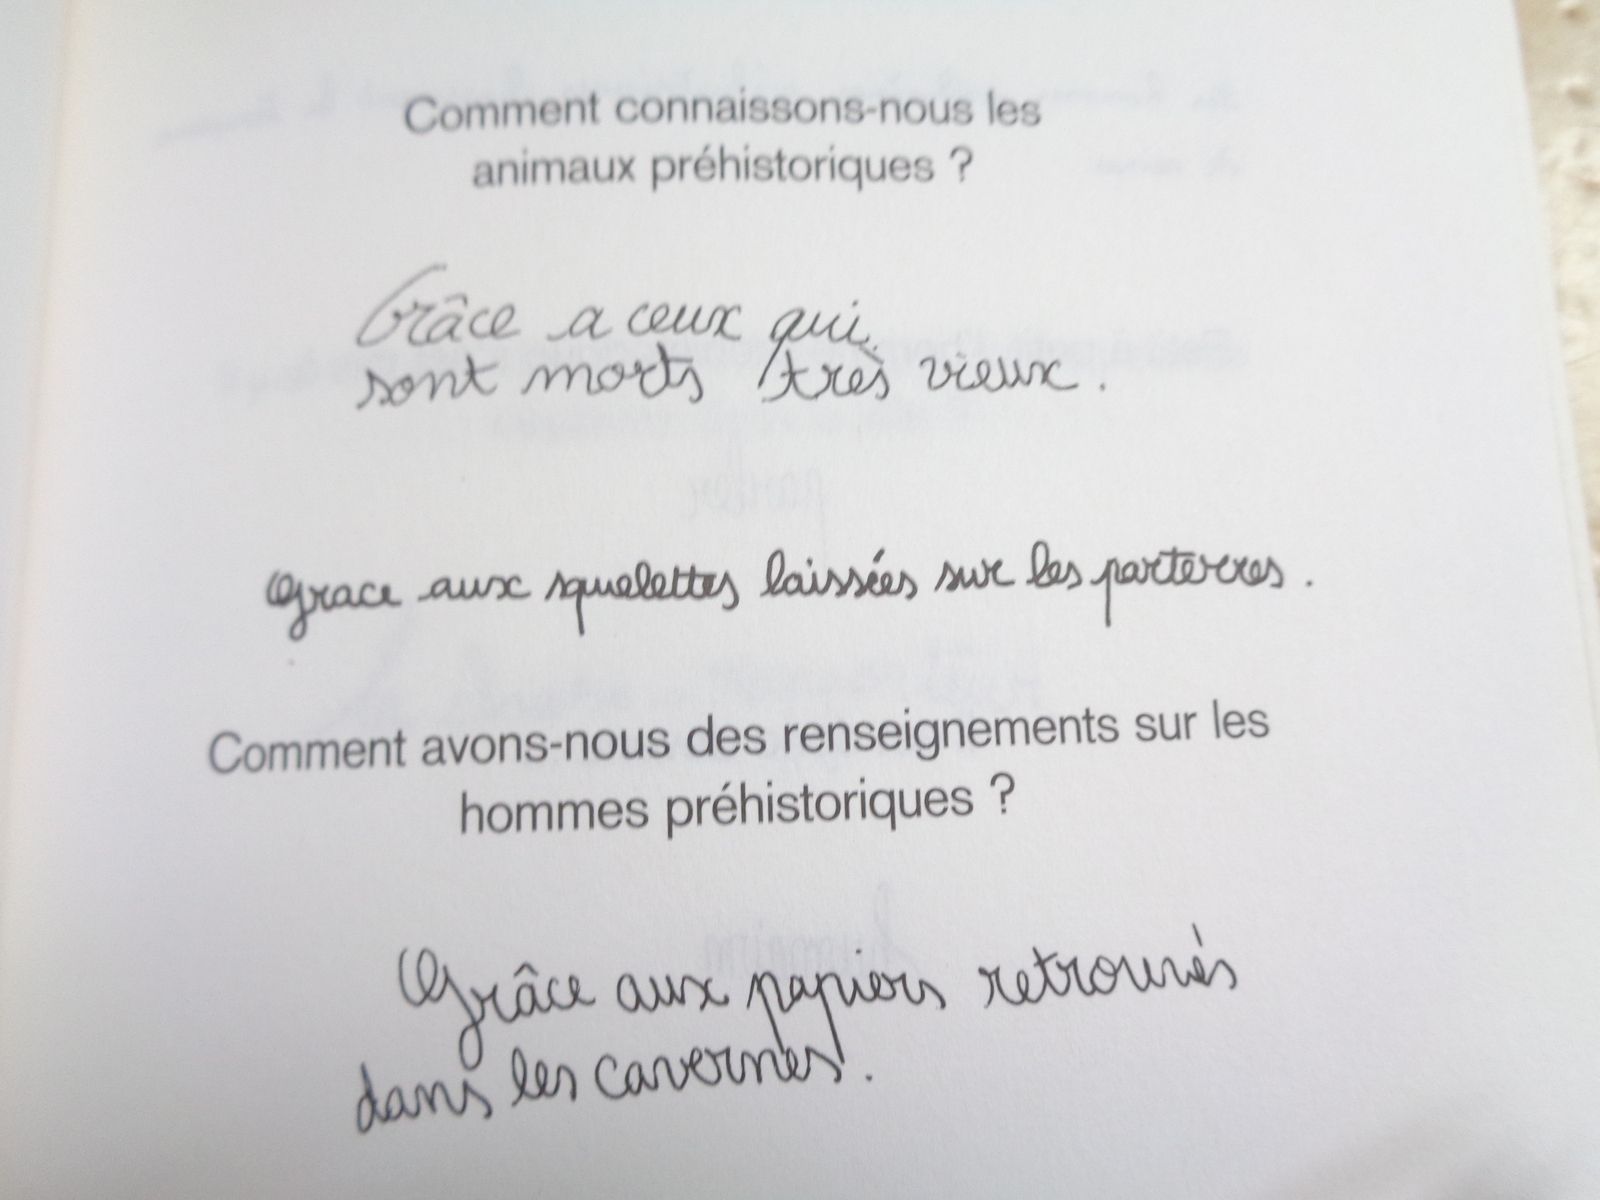 Comment connaissons-nous les
animaux préhistoriques ?
Grâce a ceux qui
sont morts très vieux.
Grace aux squelettes laissées sur les parterres.
Comment avons-nous des renseignements sur les
hommes préhistoriques ?
Grâce aux papiers retrouvés
dans les cavernes.